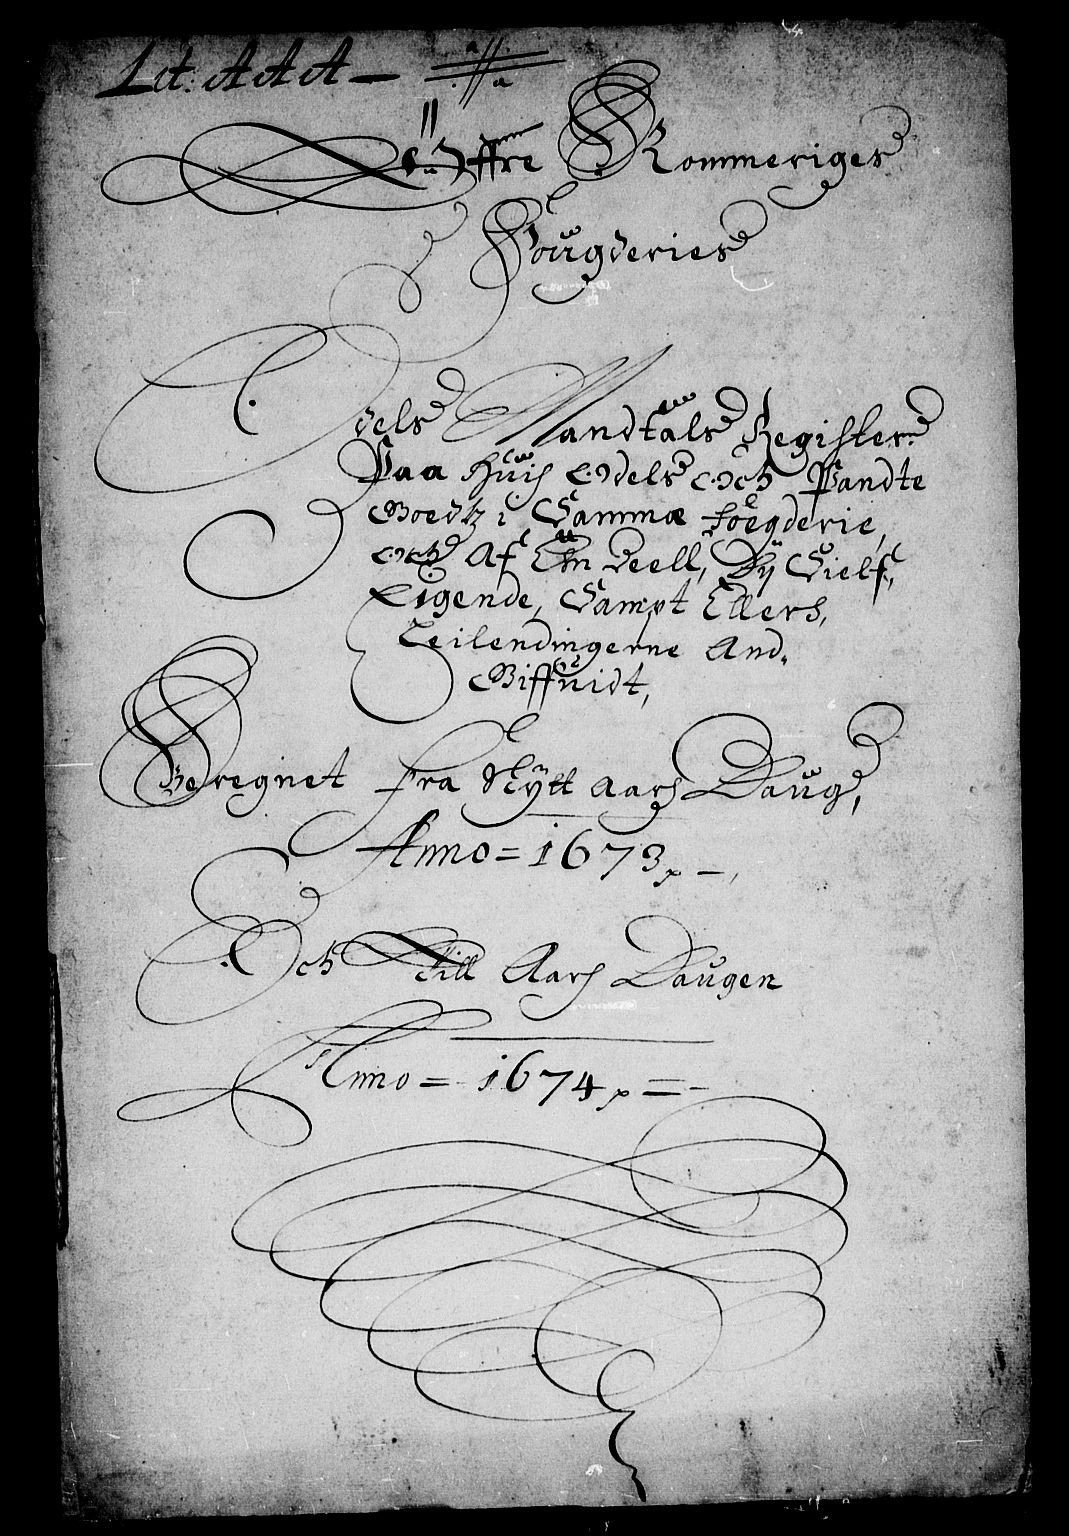 Lit: AAA —
Öffre Rommeriges
Fougderies
Odels Mandtals Register
Paa huis Odels och Pandte
Goedtz i Samme foegderie,
och Af Em deell, Dy Sielf,
Eigende, Sampt Ellers,
Leilendingerne And.
Giffuidt,
Beregnet fra Nytt aars Daug,
Anno = 1673
Och till Aars Daugen
Anno = 1674